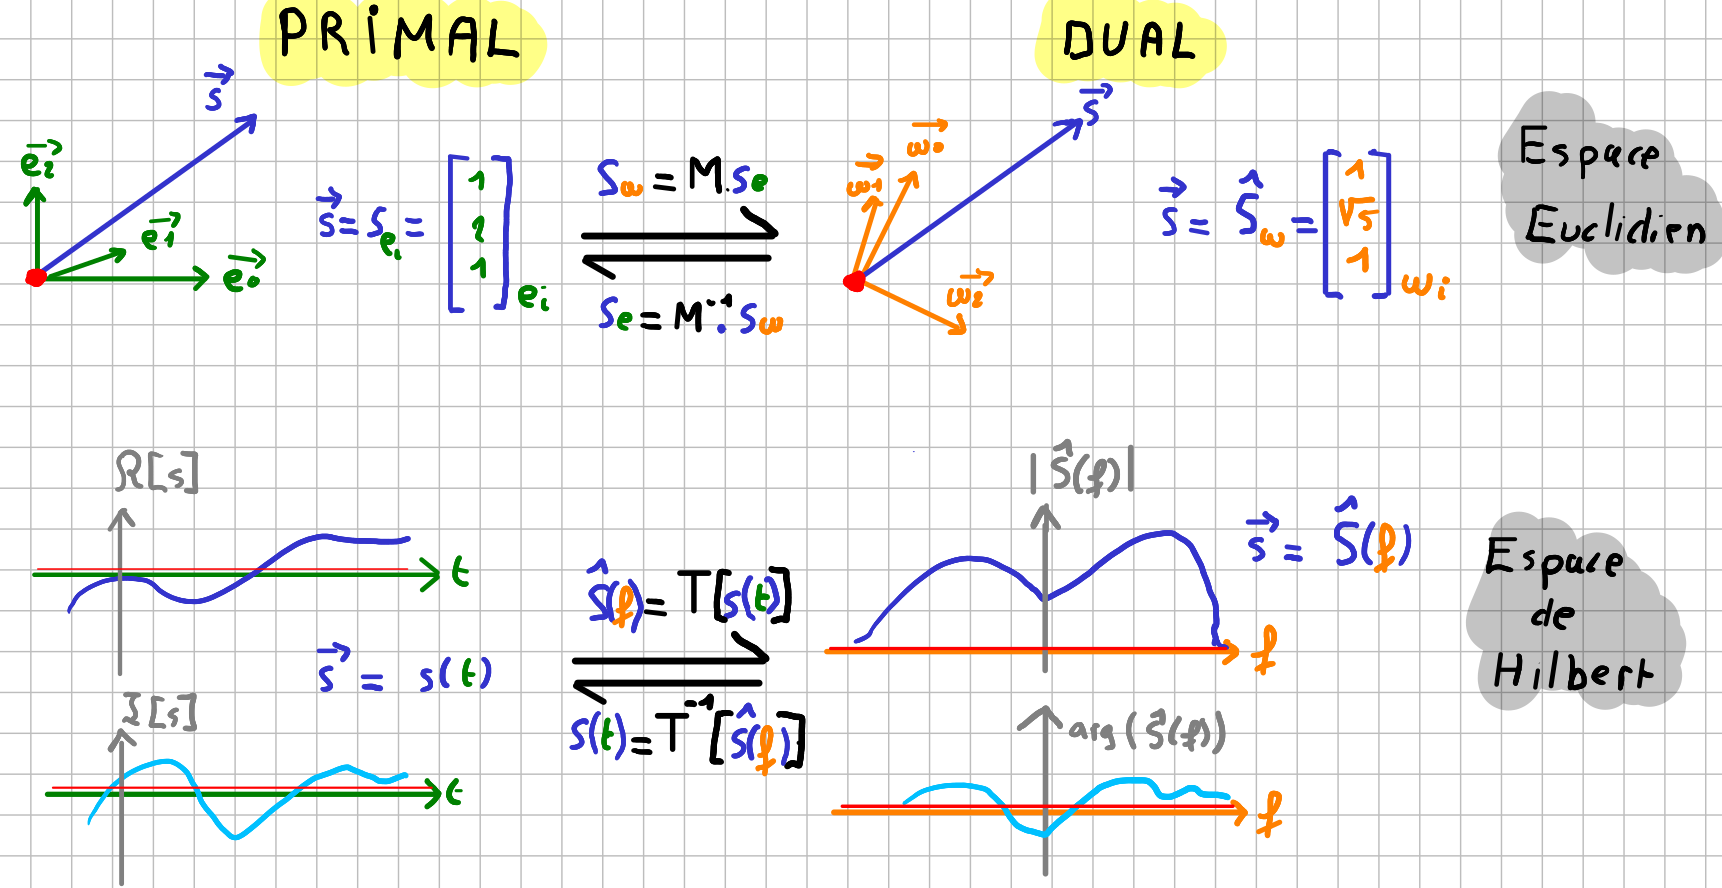 PRiMAL
DUAL
s⃗
e⃗₂
e⃗₁
e⃗₀
s⃗ = S_ei = [1 2 1]_ei
S_ω = M.S_e
S_e = M⁻¹.S_ω
s⃗
ω⃗₀
ω⃗₁
ω⃗₂
s⃗ = Ŝ_ω = [1 √5 1]_ωi
Espace
Euclidien
ℜ[s]
t
s⃗ = s(t)
ℑ[s]
t
Ŝ(f) = T[s(t)]
s(t) = T⁻¹[Ŝ(f)]
|Ŝ(f)|
f
s⃗ = Ŝ(f)
arg(Ŝ(f))
f
Espace
de
Hilbert